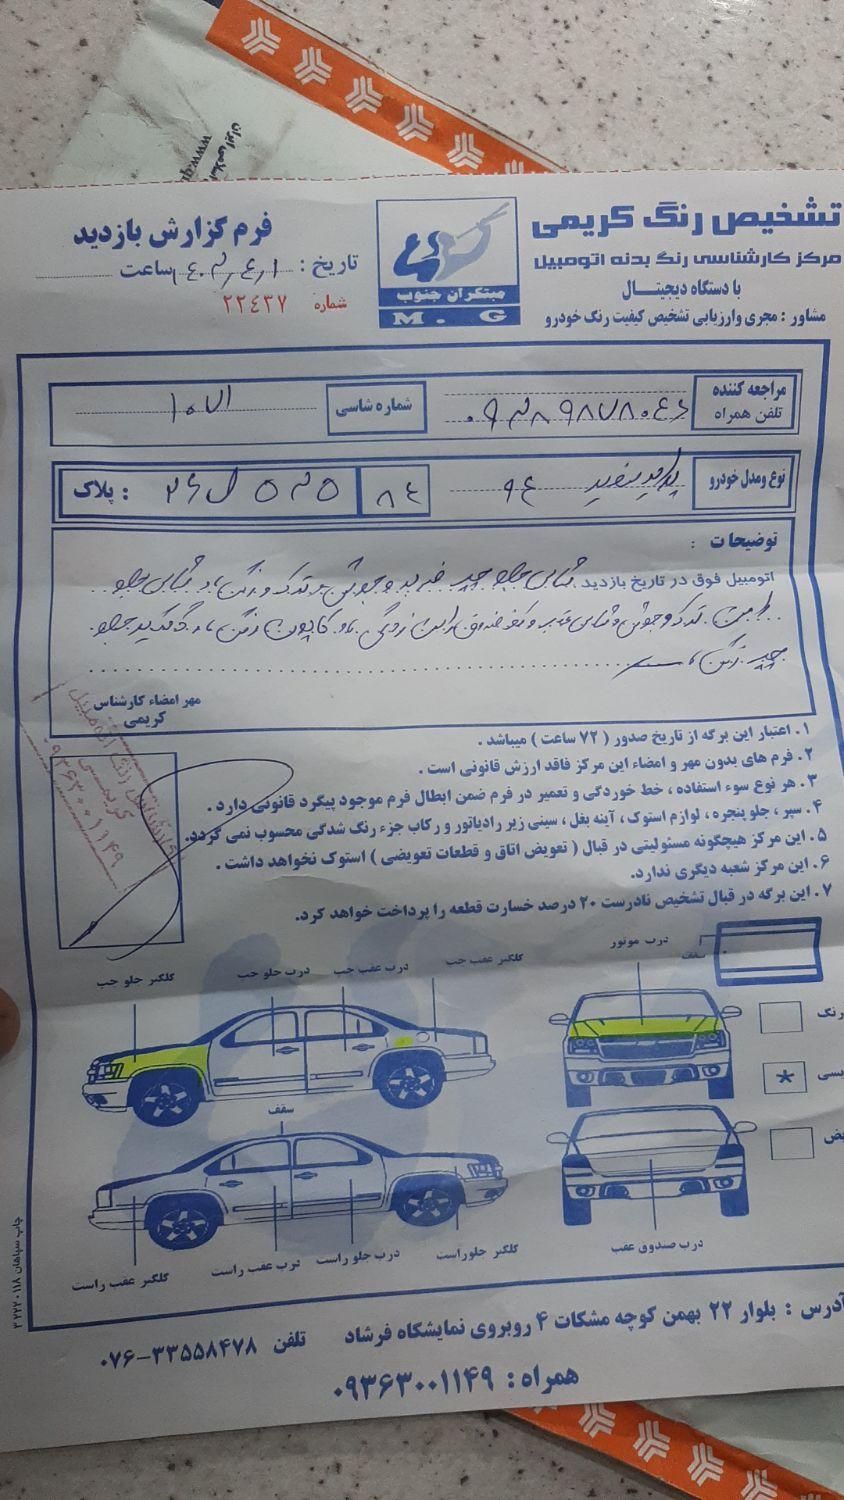 تشخیص رنگ کریمی
مرکز کارشناسی رنگ بدنه اتومبیل
با دستگاه دیجیتال
مشاور : مجری وارزیابی تشخیص کیفیت رنگ خودرو
مبتکران جنوب
M . G
فرم گزارش بازدید
تاریخ : ساعت
شماره ۲۲٤۳۷
مراجعه کننده
تلفن همراه
شماره شاسی
نوع ومدل خودرو پراید سفید ۹٤
۸٤ ۵۳۵ ل ۲۶ پلاک :
توضیحات :
اتومبیل فوق در تاریخ بازدید شاسی جلو چپ ضربه و جوش و ترک و رنگ شاسی جلو
راست ترک و جوش شاسی عقب و کف صندوق زدگی کاپوت رنگ گلگیر جلو
چپ رنگ
مهر امضاء کارشناس
کریمی
کارشناس رنگ اتومبیل
کریمی
۰۹۳۶۳۰۰۱۱۴۹
۱. اعتبار این برگه از تاریخ صدور ( ۷۲ ساعت ) میباشد .
۲. فرم های بدون مهر و امضاء این مرکز فاقد ارزش قانونی است .
۳. هر نوع سوء استفاده ، خط خوردگی و تعمیر در فرم ضمن ابطال فرم موجود پیگرد قانونی دارد .
۴. سپر ، جلو پنجره ، لوازم استوک ، آینه بغل ، سینی زیر رادیاتور و رکاب جزء رنگ شدگی محسوب نمی گردد.
۵. این مرکز هیچگونه مسئولیتی در قبال ( تعویض اتاق و قطعات تعویضی ) استوک نخواهد داشت .
۶. این مرکز شعبه دیگری ندارد.
۷. این برگه در قبال تشخیص نادرست ۲۰ درصد خسارت قطعه را پرداخت خواهد کرد.
سقف
درب موتور
گلگیر عقب چپ
درب عقب چپ
درب جلو چپ
گلگیر جلو چپ
رنگ
*
سقف
درب صندوق عقب
گلگیر جلو راست
درب جلو راست
درب عقب راست
گلگیر عقب راست
آدرس : بلوار ۲۲ بهمن کوچه مشکات ۴ روبروی نمایشگاه فرشاد تلفن ۳۳۵۵۸۴۷۸-۰۷۶
همراه : ۰۹۳۶۳۰۰۱۱۴۹